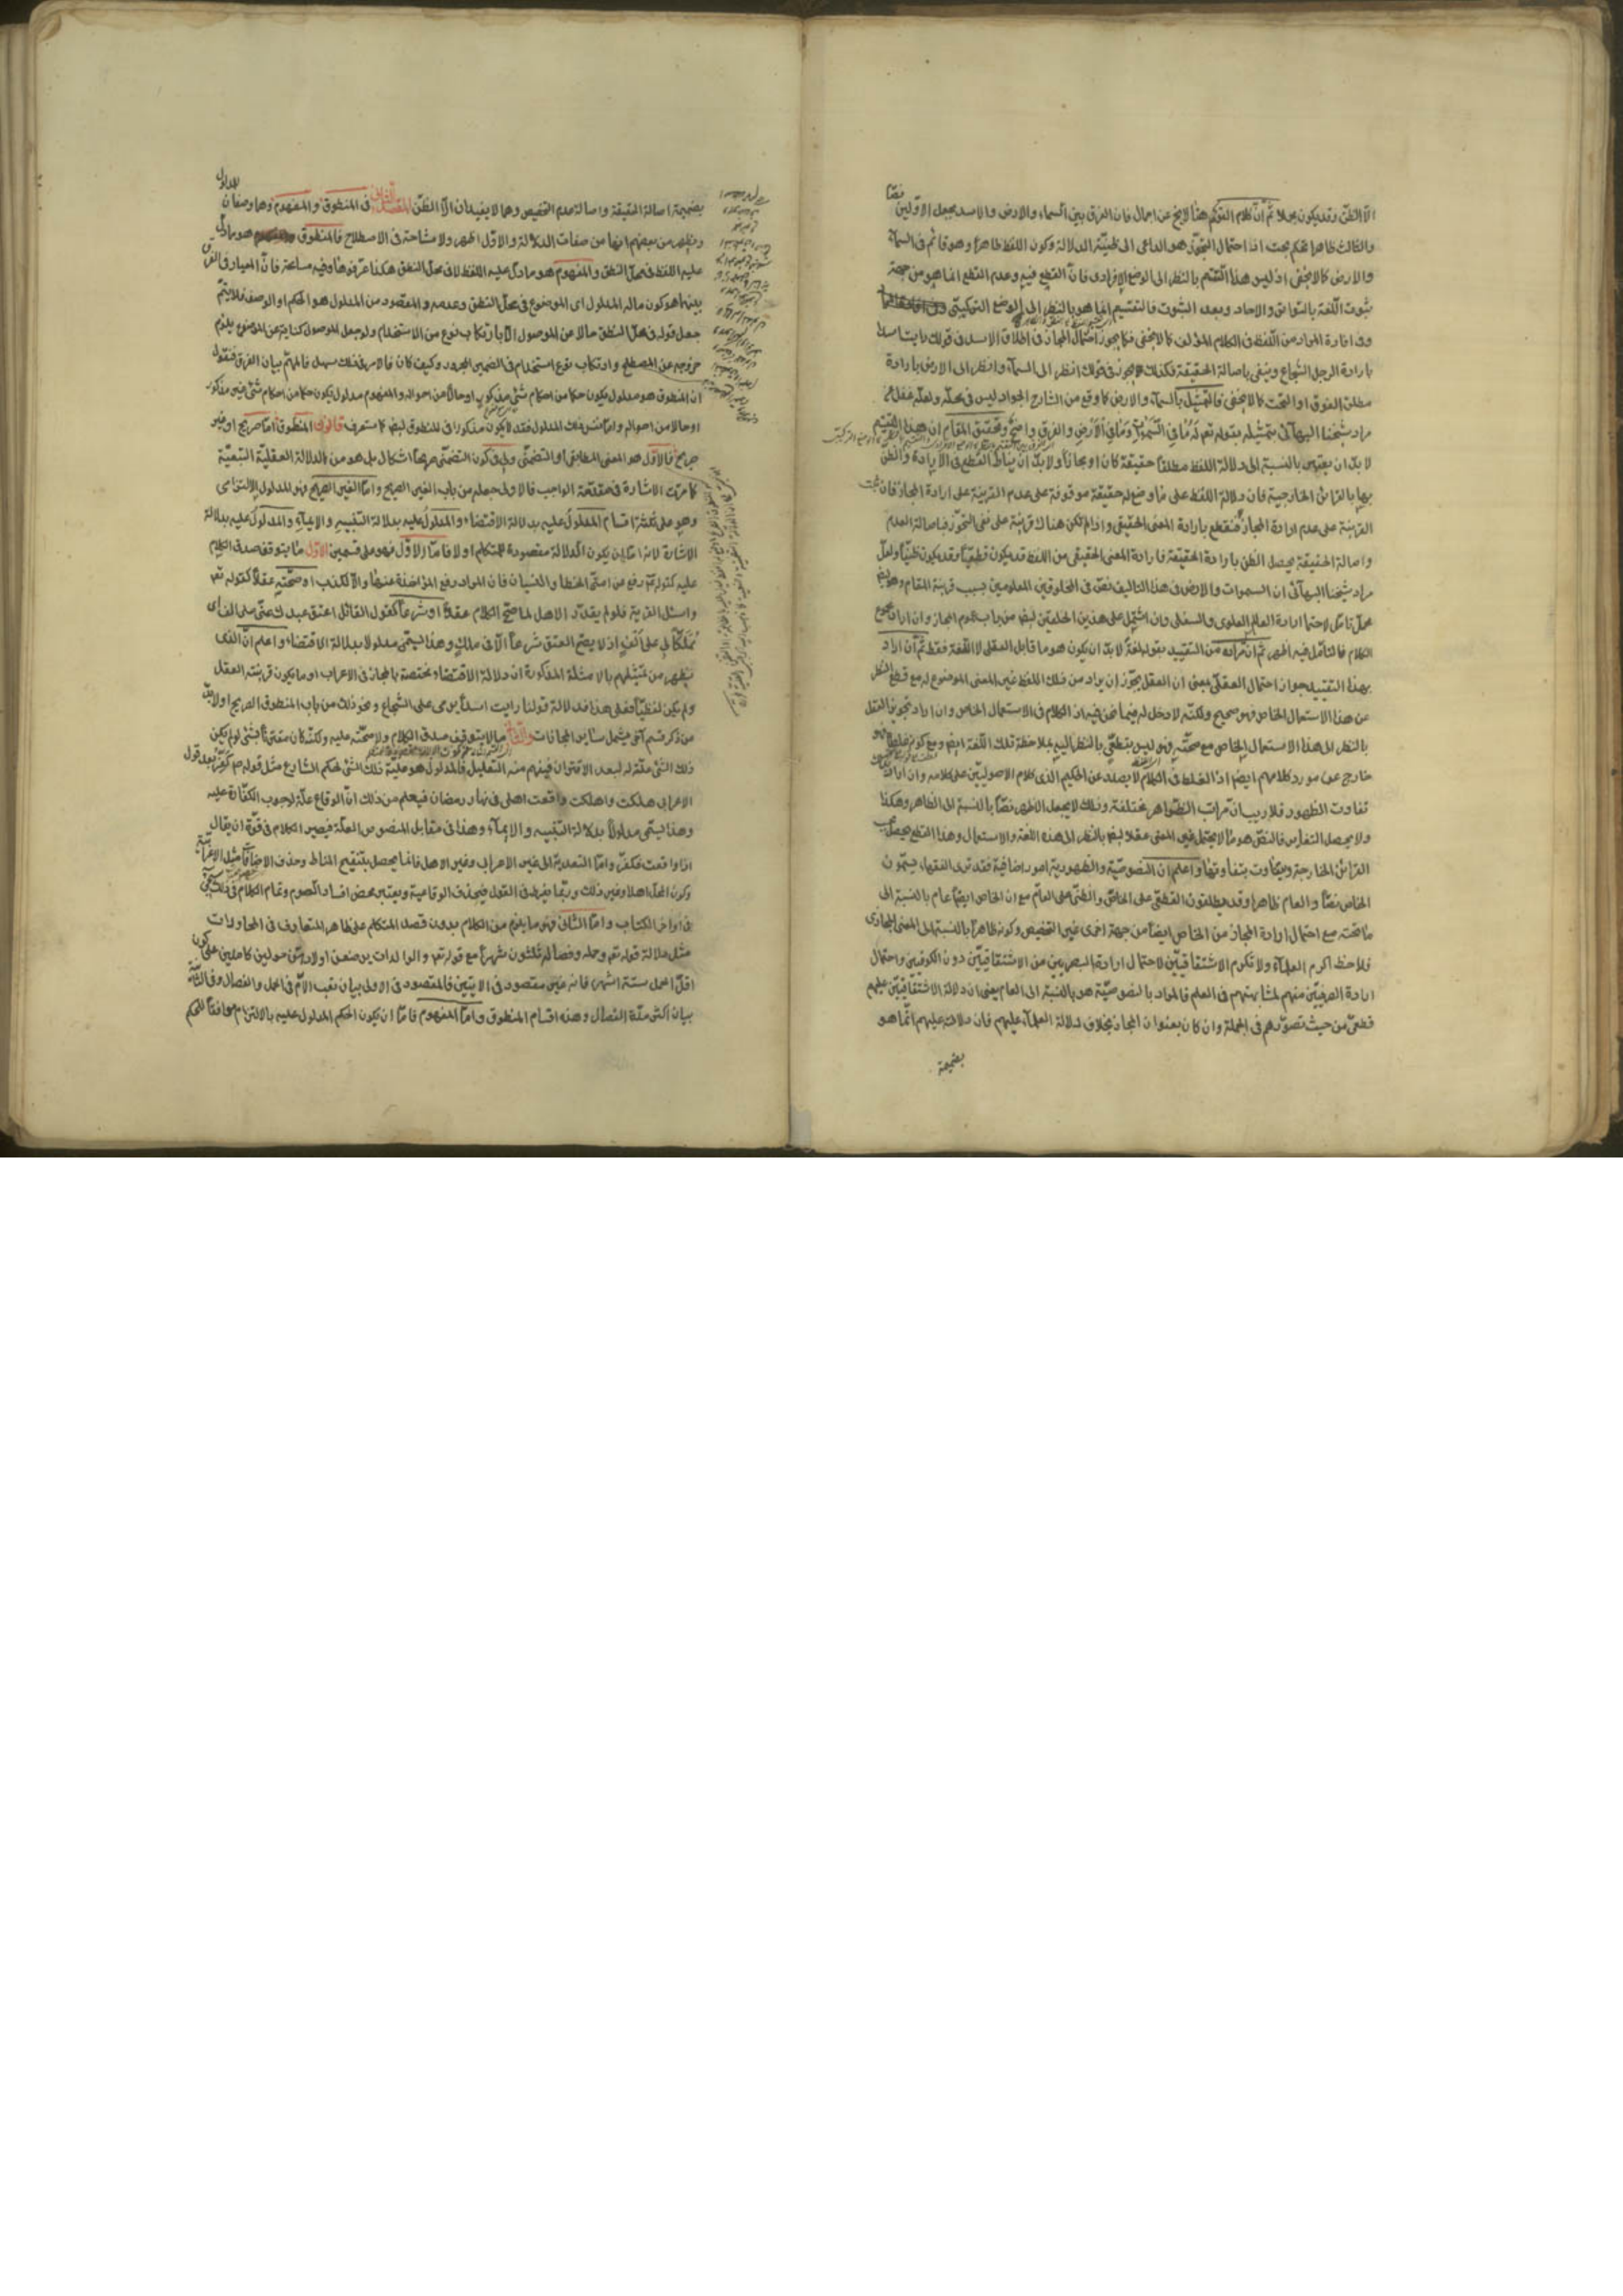 الا الظن وقد يكون مجملا ثم ان كلام القوم هنا لا يخ عن اجمال فان الفرق بين السماء والارض والاسد بجعل الاولين نصا
والثالث ظاهرا تحكم بحت اذ احتمال التجوز هو الداعى الى ظنية الدلالة وكون اللفظ ظاهرا وهو قائم فى السماء
والارض كما لا يخفى اذ ليس هذا التقسيم بالنظر الى الوضع الافرادى فان القطع فيه وعدم القطع انما هو من جهة
ثبوت اللغة بالتواتر والاحاد وبعد الثبوت فالتقسيم انما هو بالنظر الى الوضع التركيبى
وفى افادة المراد من اللفظ فى الكلام المؤلف كما لا يخفى فكما يجوز احتمال المجاز فى اطلاق الاسد فى قولك رايت اسدا
بارادة الرجل الشجاع وينفى باصالة الحقيقة فكذلك يجوز فى قولك انظر الى السماء وانظر الى الارض بارادة
مطلق الفوق او التحت كما لا يخفى فالتمثيل بالسماء والارض كما وقع من الشارح الجواد ليس فى محله ولعله غفل عن
مراد شيخنا البهائى بتمثيله بقوله تعم له ما فى السموات وما فى الارض والفرق واضح وتحقيق المقام ان هذا التقسيم
لا بد ان يعتبر بالنسبة الى دلالة اللفظ مطلقا حقيقة كان او مجازا ولا بد ان يناط القطع فى الارادة والظن
بها بالقرائن الخارجية فان دلالة اللفظ على ما وضع له حقيقة موقوفة على عدم القرينة على ارادة المجاز فان ثبت
القرينة على عدم ارادة المجاز فنقطع بارادة المعنى الحقيقى واذا لم تكن هناك قرينة على نفى التجوز فباصالة العدم
واصالة الحقيقة يحصل الظن بارادة الحقيقة فارادة المعنى الحقيقى من اللفظ قد يكون قطعيا وقد يكون ظنيا ولعل
مراد شيخنا البهائى ان السموات والارض فى هذا التاليف نص فى المخلوقين المعلومين بسبب قرينة المقام وهو ايضا
محل تامل لاحتمال ارادة العالم العلوى والسفلى وان اشتمل على هذين الخلقين ايضا من باب عموم المجاز وان اراد مجموع
الكلام فالتامل فيه اظهر ثم ان مراده من التقييد بقوله لغة لا بد ان يكون هو ما قابل العقل لا اللغة فقط ثم ان اراد
بهذا التقييد جواز احتمال العقلى بمعنى ان العقل يجوز ان يراد من ذلك اللفظ غير المعنى الموضوع له مع قطع النظر
عن هذا الاستعمال الخاص فهو صحيح ولكنه لا دخل له فيما نحن فيه اذ الكلام فى الاستعمال الخاص وان اراد تجويز العقل
بالنظر الى هذا الاستعمال الخاص مع صحته فهو ليس بقطعى بالنظر اليه بملاحظة تلك اللغة ايضا ومع كونه غلطا فهو
خارج عن مورد كلامهم ايضا اذ الغلط فى الكلام لا يصدر عن الحكيم الذى كلام الاصوليين على كلامه وان اراد
تفاوت الظهور فلا ريب ان مراتب الظواهر مختلفة وذلك لا يجعل الاظهر نصا بالنسبة الى الظاهر وهكذا
ولا يحصل التغاير فالنص هو ما لا يحتمل غير المعنى عقلا ايضا بالنظر الى هذه اللغة والاستعمال وهذا القطع يحصل بسبب
القرائن الخارجة ويتفاوت بتفاوتها واعلم ان النصوصية والظهورية امور اضافية فقد ترى الفقهاء يسمون
الخاص نصا والعام ظاهرا وقد يطلقون القطعى على الخاص والظنى على العام مع ان الخاص ايضا عام بالنسبة الى
ما تحته مع احتمال ارادة المجاز من الخاص ايضا من جهة اخرى غير التخصيص وكونه ظاهرا بالنسبة الى المعنى المجازى
فلاحظ اكرم العلماء ولا تكرم الاشتقاقيين لاحتمال ارادة البصريين من الاشتقاقيين دون الكوفيين واحتمال
ارادة الصرفيين منهم لمشابهتهم فى العلم فالمراد بالنصوصية هو بالنسبة الى العام يعنى ان دلالة الاشتقاقيين عليهم
قطعى من حيث تصورهم فى الجملة وان كان بعنوان المجاز بخلاف دلالة العلماء عليهم فان دلالته عليهم انما هو
بضميمة
بضميمة اصالة الحقيقة واصالة عدم التخصيص وهما لا يفيدان الا الظن المقصد الثانى فى المنطوق والمفهوم وهما وصفان للمدلول
ويظهر من بعضهم انهما من صفات الدلالة والاول اظهر ولا مشاحة فى الاصطلاح فالمنطوق هو ما دل
عليه اللفظ فى محل النطق والمفهوم هو ما دل عليه اللفظ لا فى محل النطق هكذا عرفوهما وفيه مسامحة فان المعيار فى الفرق
بينهما هو كون ما له المدلول اى الموضوع فى محل النطق وعدمه والمقصود من المدلول هو الحكم او الوصف فلا يتم
جعل قوله فى محل النطق حالا من الموصول الا بارتكاب نوع من الاستخدام ولو جعل الموصول كناية عن الموضوع يلزم
خروجه عن المصطلح وارتكاب نوع استخدام فى الضمير المجرور وكيف كان فالامر فى ذلك سهل فالمهم بيان الفرق فنقول
ان المنطوق هو مدلول يكون حكما من احكام شئ مذكور او حالا من احواله والمفهوم مدلول يكون حكما من احكام شئ غير مذكور
او حالا من احواله واما نفس ذلك المدلول فقد لا يكون مذكورا فى المنطوق ايضا كما ستعرف قانون المنطوق اما صريح او غير
صريح فالاول هو المعنى المطابقى او التضمنى ولى فى كون التضمنى صريحا اشكال بل هو من الدلالة العقلية التبعية
كما مرت الاشارة فى مقدمة الواجب فالاولى جعله من باب الغير الصريح واما الغير الصريح فهو المدلول الالتزامى
وهو على ثلثة اقسام المدلول عليه بدلالة الاقتضاء والمدلول عليه بدلالة التنبيه والايماء والمدلول عليه بدلالة
الاشارة لانه اما ان يكون الدلالة مقصودة للمتكلم او لا فاما الاول فهو على قسمين الاول ما يتوقف صدق الكلام
عليه كقوله ص رفع عن امتى الخطا والنسيان فان المراد رفع المؤاخذة عنها والا لكذب او صحته عقلا كقوله تعم
واسئل القرية فلو لم يقدر الاهل لما صح الكلام عقلا او شرعا كقول القائل اعتق عبدك عنى على الف اى
مملكا لى على الف اذ لا يصح العتق شرعا الا فى ملك وهذا يسمى مدلولا بدلالة الاقتضاء واعلم ان الذى
يظهر من تمثيلهم بالامثلة المذكورة ان دلالة الاقتضاء مختصة بالمجاز فى الاعراب او ما يكون قرينته العقل
ولم يكن لفظيا فعلى هذا فدلالة قولنا رايت اسدا يرمى على الشجاع ونحو ذلك من باب المنطوق الصريح او لا بد
من ذكر قسم آخر يشمل سائر المجازات والثانى ما لا يتوقف صدق الكلام ولا صحته عليه ولكنه كان مقترنا بشئ لو لم يكن
ذلك الشئ علة له لبعد الاقتران فيفهم منه التعليل فالمدلول هو علية ذلك الشئ لحكم الشارع مثل قوله ص كفر بعد قول
الاعرابى هلكت واهلكت واقعت اهلى فى نهار رمضان فيعلم من ذلك ان الوقاع علة لوجوب الكفارة عليه
وهذا يسمى مدلولا بدلالة التنبيه والايماء وهذا فى مقابل المنصوص العلة فيصير الكلام فى قوة ان يقال
اذا واقعت فكفر واما التعدية الى غير الاعرابى وغير الاهل فانما يحصل بتنقيح المناط وحذف الاضافات مثل الاعرابية
وكون المحل اهلا وغير ذلك وربما يفرط فى القول فيحذف الوقاعية ويعتبر محض افساد الصوم وتمام الكلام فى ذلك سيجئ
فى اواخر الكتاب واما الثانى فهو ما يلزم من الكلام بدون قصد المتكلم على ظاهر المتعارف فى المحاورات
مثل دلالة قوله تعم وحمله وفصاله ثلثون شهرا مع قوله تعم والوالدات يرضعن اولادهن حولين كاملين على كون
اقل الحمل ستة اشهر فانه غير مقصود فى الايتين فالمقصود فى الاولى بيان تعب الام فى الحمل والفصال وفى الثانية
بيان اكثر مدة الفصال وهذه اقسام المنطوق واما المفهوم فاما ان يكون الحكم المدلول عليه بالالتزام موافقا للحكم